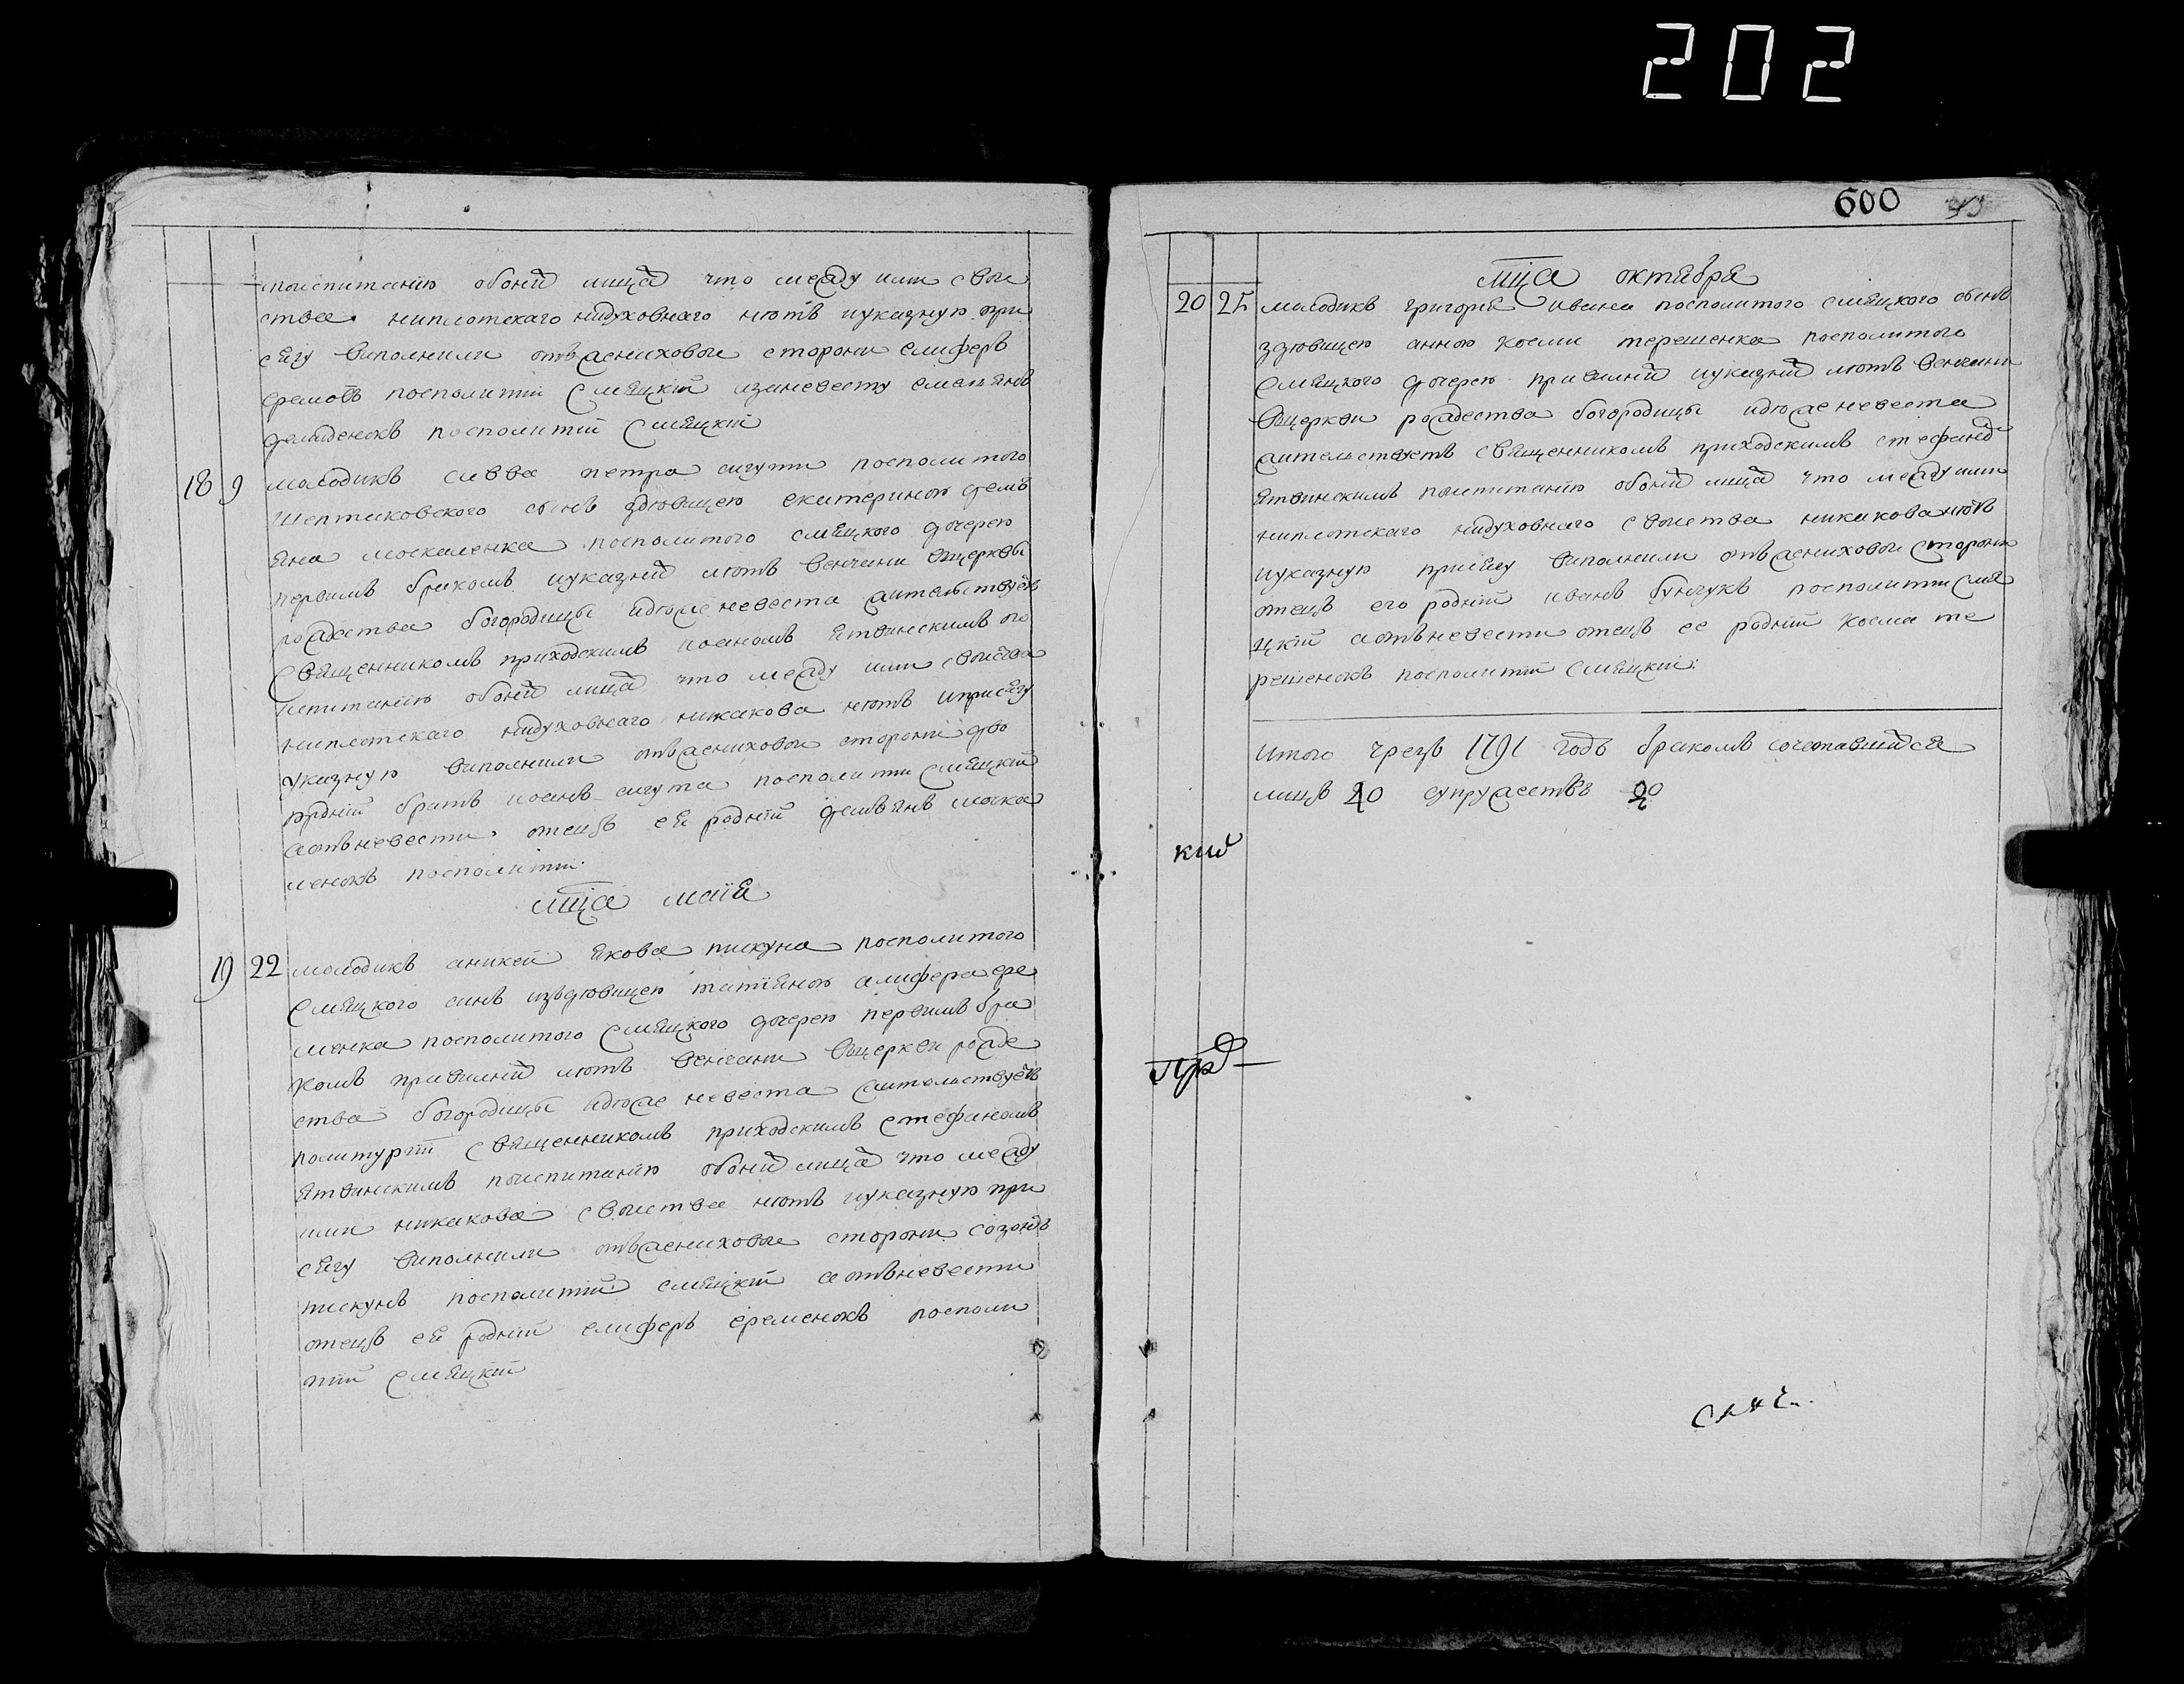 202
поиспитанію обоихъ лицъ что между ими свои
ства ниплотскаго нидуховнаго нѣтъ иуказную при
сягу виполнили отъ жениховои сторони елиферъ
еремовъ посполитій смяцкій изаневесту емелянъ
демиденокъ посполитій смяцкій
18 9 молодикъ савва петра сигути посполитого
шептаковского синъ здѣвицею екатериною демъ
яна москаленка посполитого смяцкого дочерею
первимъ бракомъ иуказнихъ лѣтъ венчани вцерквѣ
рождества богородицы идѣже невеста жителствуетъ
священникомъ приходскимъ іоанномъ ятвинскимъ по
испитанію обоихъ лицъ что между ими свойства
ниплотскаго нидуховнаго никакова нѣтъ иприсягу
указную виполнили отъ жениховои сторони дво
юродній братъ иоанъ сигута посполити смяцкій
аотъ невести отецъ ея родній демъянъ моска
ленокъ посполитій
мца маія
19 22 молодикъ аникей якова пискуна посполитого
смяцкого синъ издѣвицею татіяною алифера ере
менка посполитого смяцкого дочерею первимъ бра
комъ правилнихъ лѣтъ венчани вцеркви рожде
ства богородицы идѣже невеста жителствуетъ
священникомъ приходскимъ стефаномъ
ятвинскимъ поиспитанію обоихъ лицъ что между
ими никакова свойства нѣтъ иуказную при
сягу виполнили отъ жениховои сторони созонъ
пискунъ посполитій смяцкій аотъ невести
отецъ ея родній елиферъ еременокъ посполи
тій смяцкій
600
мца октября
20 25 молодикъ григорій ивана посполитого смяцкого синъ
здѣвицею анною косми терешенка посполитого
смяцкого дочерею правилнихъ иуказнихъ лѣтъ венчани
вцеркви рождества богородицы идѣже невеста
жителствуетъ священникомъ приходскимъ стефаномъ
ятвинскимъ поиспитанію обоихъ лицъ что между ими
ниплотскаго нидуховнаго своиства никакова нѣтъ
иуказную присягу виполнили отъ жениховои сторони
отецъ его родній иванъ бунчукъ посполитти смя
цкій аотъ невести отецъ ее родній косма те
решенокъ посполитій смяцкій
Итого чрезъ 1791 годъ бракомъ сочетавшихся
лицъ 40 супружествъ 20